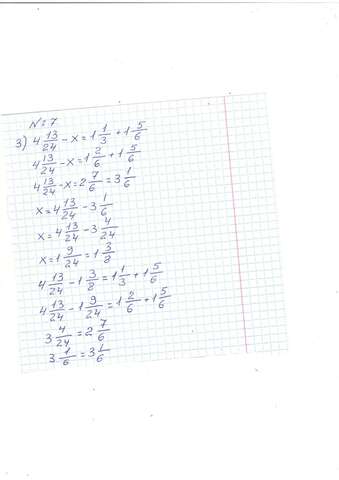 № 7
3) 4 13/24 - x = 1 1/3 + 1 5/6
4 13/24 - x = 1 2/6 + 1 5/6
4 13/24 - x = 2 7/6 = 3 1/6
x = 4 13/24 - 3 1/6
x = 4 13/24 - 3 4/24
x = 1 9/24 = 1 3/8
4 13/24 - 1 3/8 = 1 1/3 + 1 5/6
4 13/24 - 1 9/24 = 1 2/6 + 1 5/6
3 4/24 = 2 7/6
3 1/6 = 3 1/6